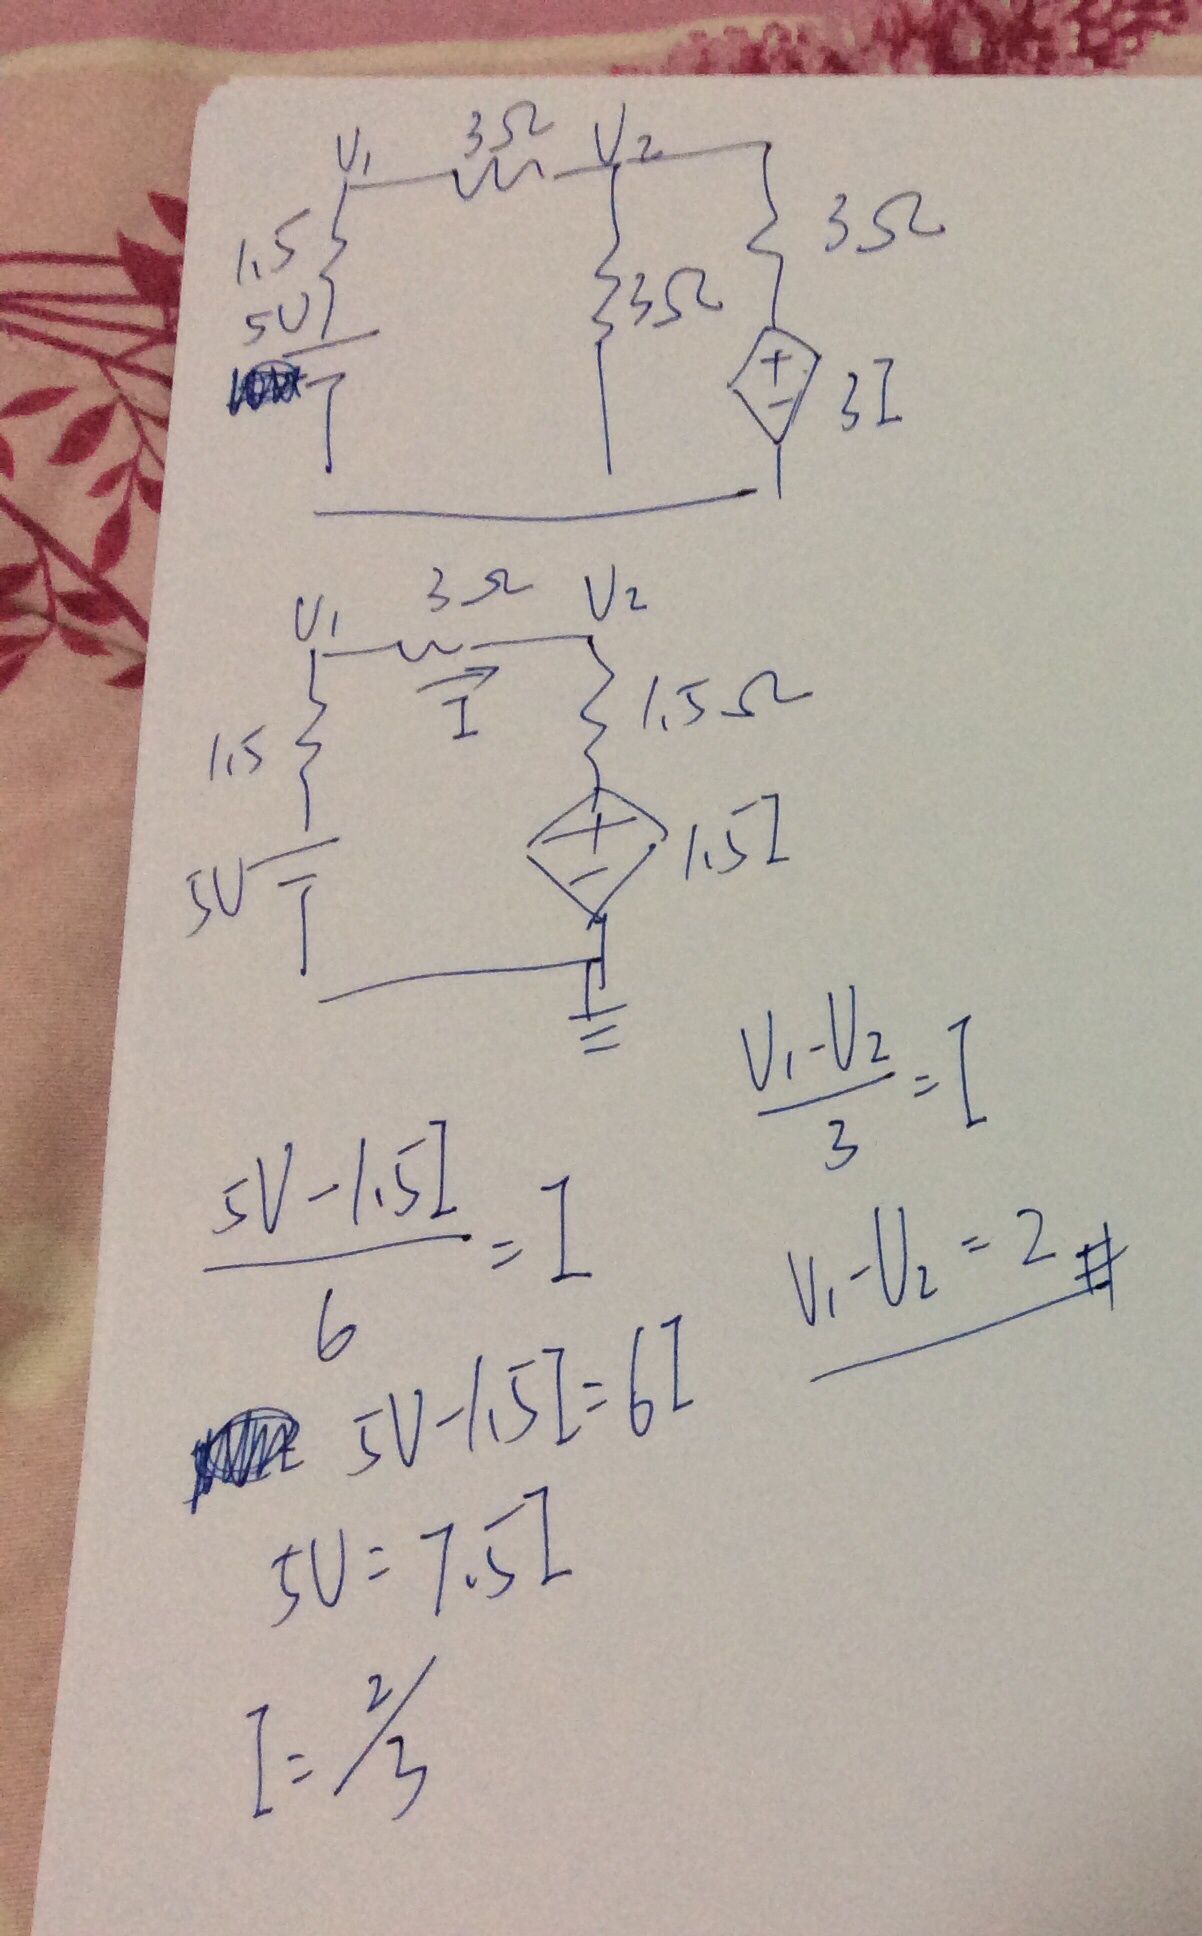 3Ω
V₁ V₂
1.5 3Ω
5V 3Ω
+
- 3I
3Ω V₂
V₁
I
1.5 1.5Ω
5V + 1.5I
-
(V₁-V₂)/3 = I
(5V-1.5I)/6 = I
V₁-V₂=2#
5V-1.5I=6I
5V=7.5I
I=2/3